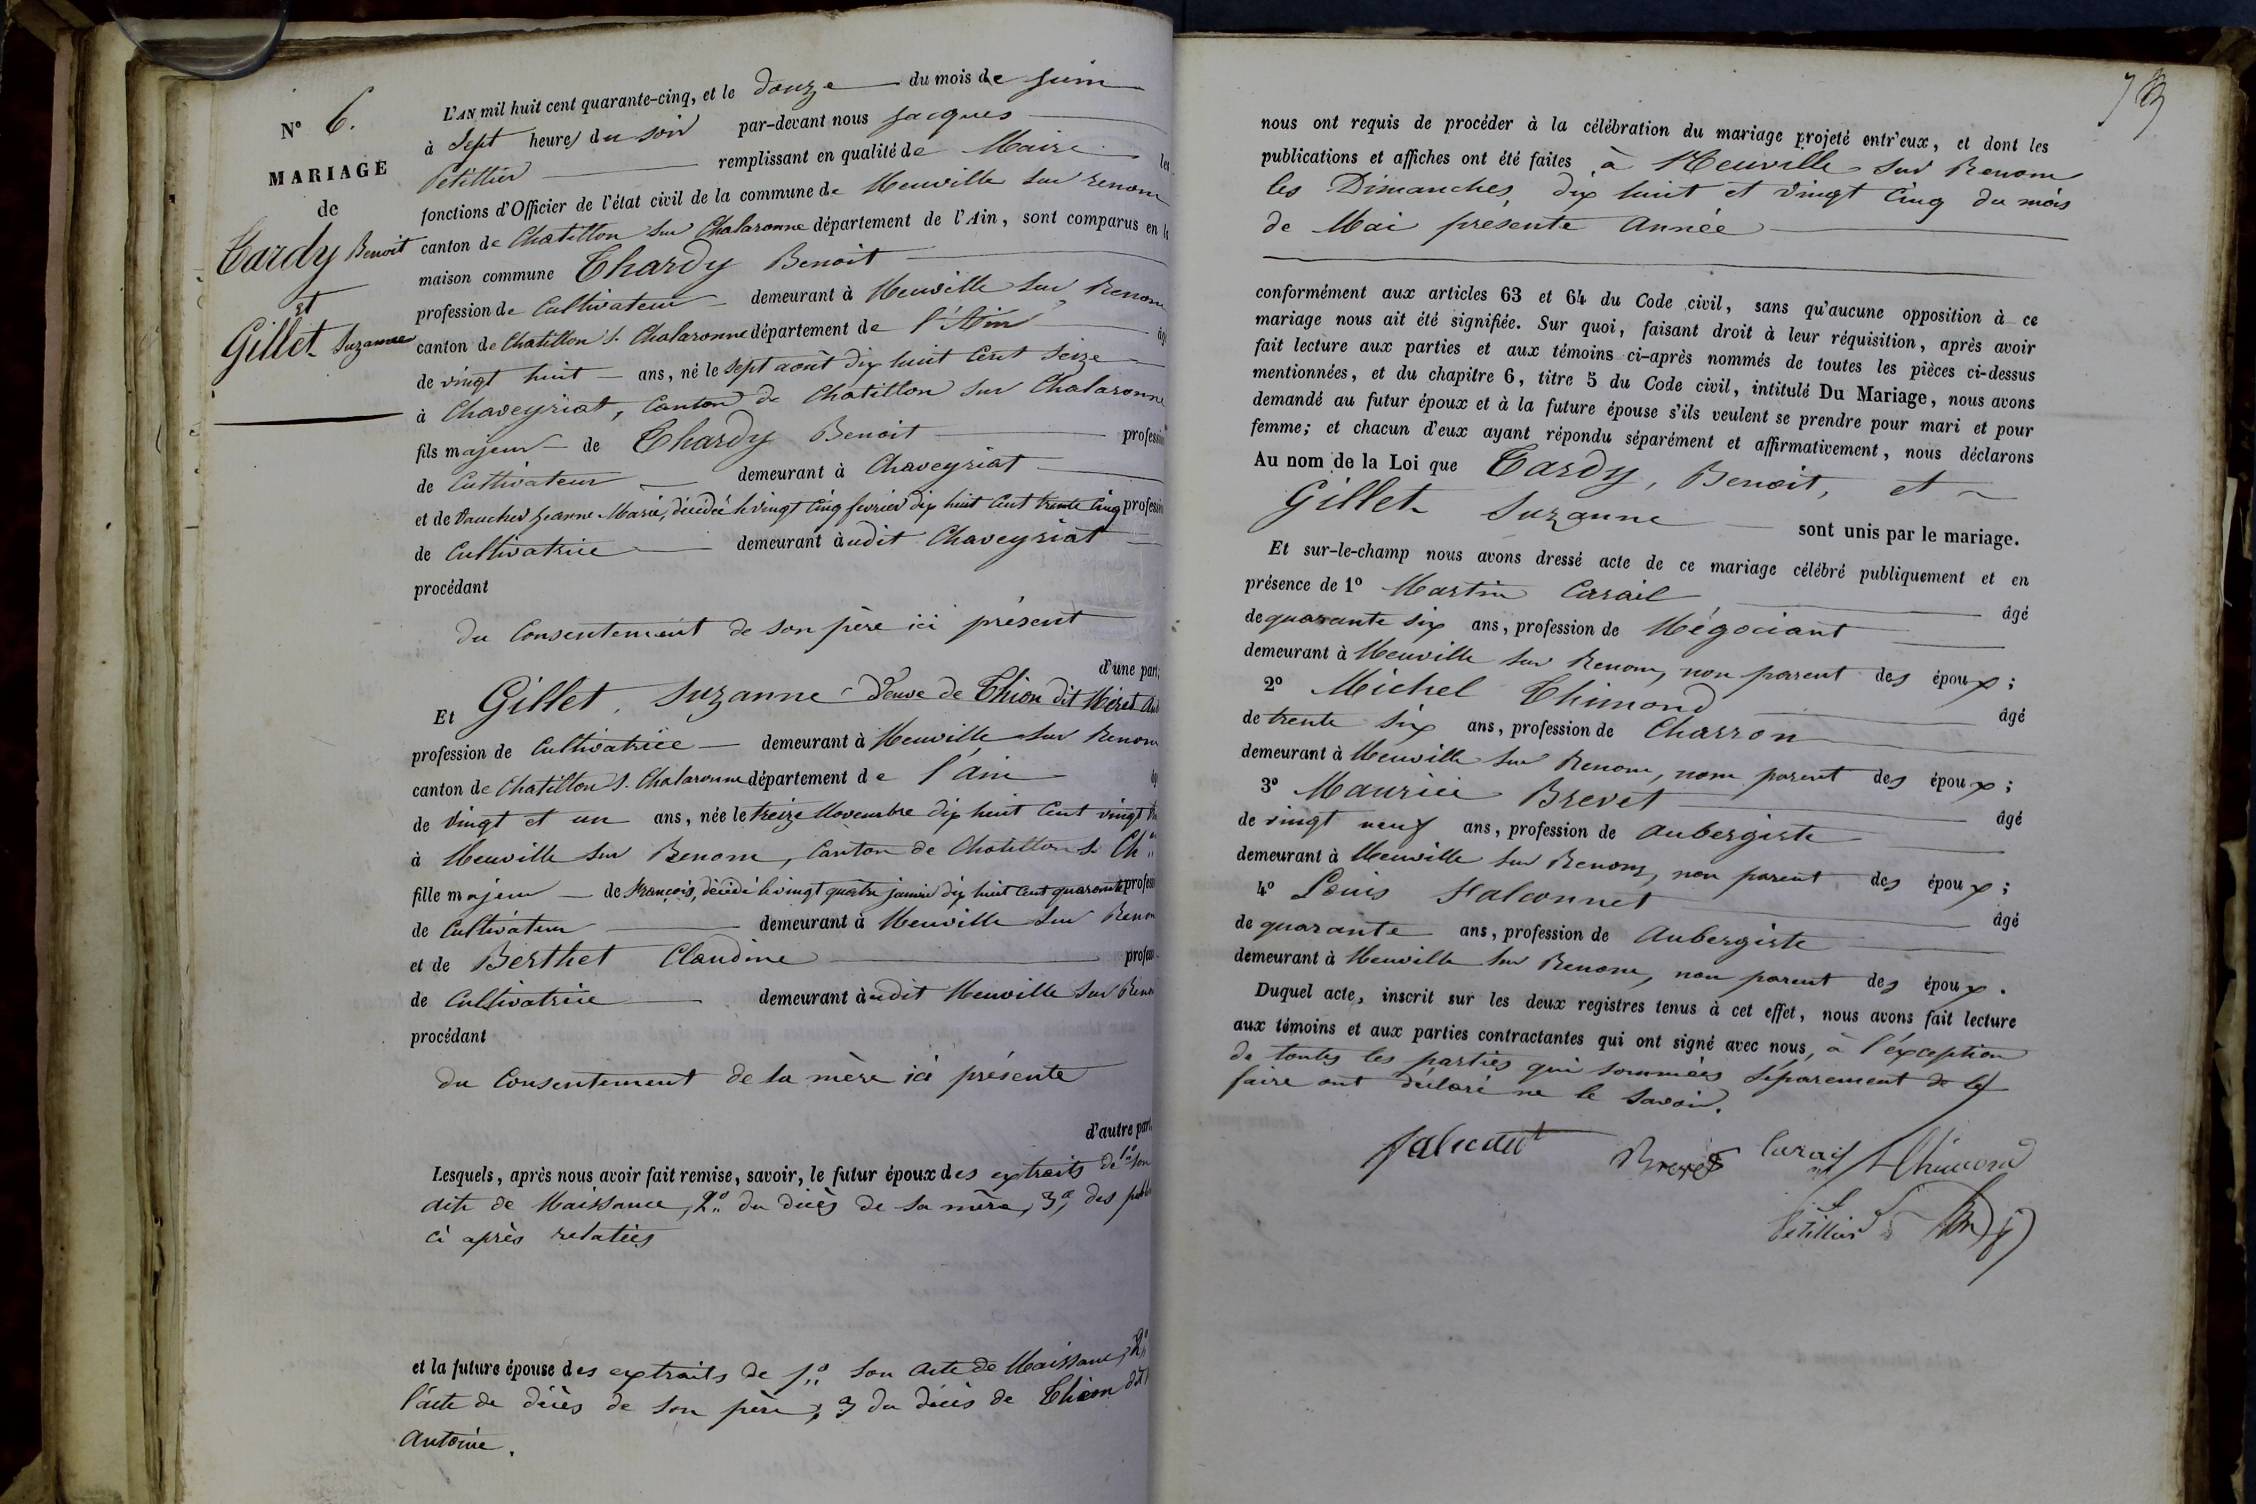 N° 6.
MARIAGE
de
Tardy Benoit
et
Gillet Suzanne
L'AN mil huit cent quarante-cinq, et le douze du mois de juin
à Sept heures du soir par-devant nous Jacques
Petillier remplissant en qualité de Maire les
fonctions d'Officier de l'état civil de la commune de Neuville sur renom
canton de Chatillon sur Chalaronne département de l'Ain, sont comparus en la
maison commune Thardy Benoit
profession de Cultivateur demeurant à Neuville sur Renom
canton de Chatillon s. Chalaronne département de l'Ain âgé
de vingt huit ans, né le sept août dix huit Cent Seize
à Chaveyriat, Canton de Chatillon sur Chalaronne
fils majeur de Thardy Benoit profession
de Cultivateur demeurant à Chaveyriat
et de Vaucher Jeanne Marie, décédée le vingt Cinq fevrier dix huit Cent trente Cinq profession
de Cultivatrice demeurant àudit Chaveyriat
procédant
du Consentement de son père ici présent
d'une part;
Et Gillet, Suzanne Veuve de Thion dit Méret
profession de Cultivatrice demeurant à Neuville sur Renom
canton de Chatillon s. Chalaronne département de l'Ain
de Vingt et un ans, née le treize Novembre dix huit Cent vingt
à Neuville sur Renom, Canton de Chatillon s. Ch
fille majeur de François, décédé le vingt quatre janvier dix huit Cent quarante profess
de Cultivateur demeurant à Neuville sur Renom
et de Berthet Claudine profess
de Cultivatrice demeurant àudit Neuville sur Renom
procédant
du Consentement de la mère ici présente
d'autre part.
Lesquels, après nous avoir fait remise, savoir, le futur époux des extraits de 1° son
acte de Naissance, 2° du décès de sa mère, 3° des publ
ci après relatées
et la future épouse des extraits de 1° son acte de Naissance, 2°
l'acte de décès de son père, 3 du décès de Thion dit
Antoine.
nous ont requis de procéder à la célébration du mariage projeté entr'eux, et dont les
publications et affiches ont été faites à Neuville sur Renom
les Dimanches dix huit et vingt Cinq du mois
de Mai présente Année
conformément aux articles 63 et 64 du Code civil, sans qu'aucune opposition à ce
mariage nous ait été signifiée. Sur quoi, faisant droit à leur réquisition, après avoir
fait lecture aux parties et aux témoins ci-après nommés de toutes les pièces ci-dessus
mentionnées, et du chapitre 6, titre 5 du Code civil, intitulé Du Mariage, nous avons
demandé au futur époux et à la future épouse s'ils veulent se prendre pour mari et pour
femme; et chacun d'eux ayant répondu séparément et affirmativement, nous déclarons
Au nom de la Loi que Tardy, Benoit, et
Gillet Suzanne sont unis par le mariage.
Et sur-le-champ nous avons dressé acte de ce mariage célébré publiquement et en
présence de 1° Martin Carail âgé
de quarante six ans, profession de Négociant
demeurant à Neuville sur Renom, non parent des époux;
2° Michel Thimond âgé
de trente six ans, profession de Charron
demeurant à Neuville sur Renom, non parent des époux;
3° Maurice Brevet âgé
de vingt neuf ans, profession de aubergiste
demeurant à Neuville sur Renom, non parent des époux;
4° Louis Falconnet âgé
de quarante ans, profession de Aubergiste
demeurant à Neuville sur Renom, non parent des époux.
Duquel acte, inscrit sur les deux registres tenus à cet effet, nous avons fait lecture
aux témoins et aux parties contractantes qui ont signé avec nous, à l'éxception
de toutes les parties qui sommées séparement de le
faire ont déclaré ne le savoir.
Falconnet Brevet Carail Thimond
Petillier